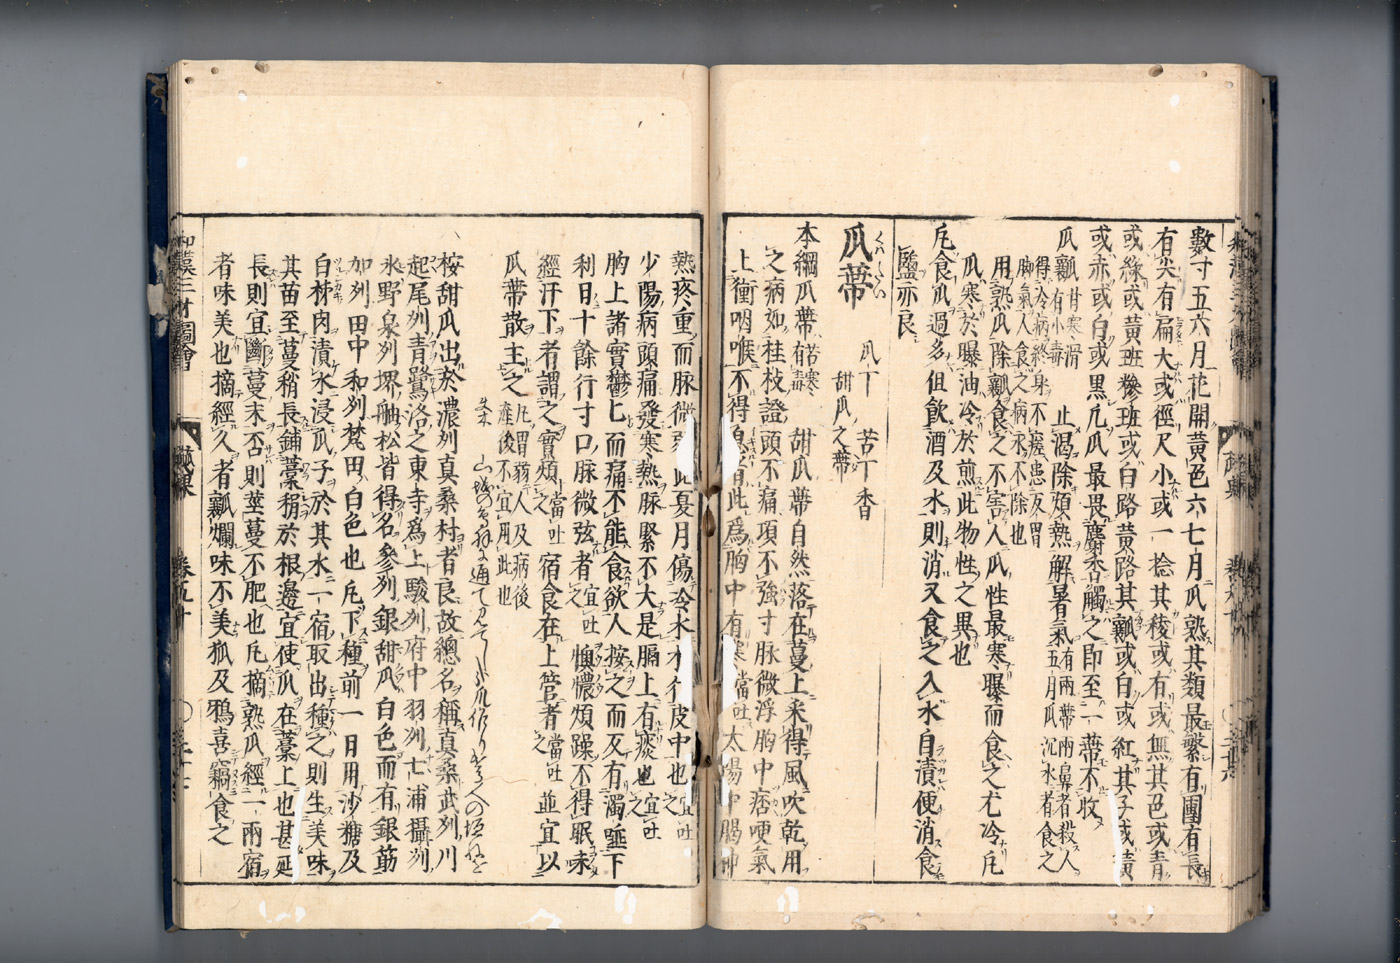 數寸五六月花開黄色六七月瓜熟其類最繫有團有長
有尖有扁大或徑尺小或一捻其稜或有或無其色或青
或綠或黄班糝班或白路黄路其瓤或白或紅其子或黄
或赤或白或黒凡瓜最畏麝香觸之即至一蒂不收
瓜瓤 甘寒滑有小毒 止渴除煩熱解暑氣 五月瓜沉水者食之
得冷病終身不瘥患反胃
脚氣人食之病永不除也
有兩蒂兩鼻者殺人
用熟瓜除瓤食之不害人瓜性最寒曝而食之尤冷凡
瓜寒於曝油冷於煎此物性之異也
凡食瓜過多但飲酒及水則消又食之入水自漬便消食
鹽亦良
瓜蒂 くはのへた 瓜丁 苦丁香
甜瓜之蒂
本綱瓜蒂 苦寒有毒 甜瓜蒂自然落在蔓上采得風吹乾用
之病如桂枝證頭不痛項不強寸脉微浮胸中痞哽氣
上衝咽喉不得息者此爲胸中有寒當吐太陽中暍
熱疼重而脉微弱此夏月傷冷水水行皮中也宜吐之
少陽病頭痛發寒熱脉緊不大是膈上有痰也宜吐之
胸上諸實鬱鬱而痛不能食欲人按之而反有濁唾下
利日十餘行寸口脉微弦者宜吐之懊憹煩躁不得眠
經汗下者謂之實煩當吐之宿食在上管者當吐之並宜以
瓜蒂散主之 凡胃弱人及病後産後不宜用此也
按甜瓜出於濃列真桑村者良故總名稱真桑武列川
起尾列青鷺洛之東寺爲上駿列府中羽列七浦攝列
氷野泉列堺舳松皆得名參列銀甜瓜白色而有銀筋
加列田中和列梵田白色也凡下種前一日用沙糖及
白林肉漬水浸瓜子於其水一宿取出種之則生美味
其苗至蔓稍長鋪藁稍於根邊宜使瓜在藁上也甚延
長則宜斷蔓末否則莖蔓不肥也凡摘熟瓜經一兩宿
者味美也摘經久者瓤爛味不美狐及鴉喜竊食之
和漢三才圖會
蓏果
卷九十